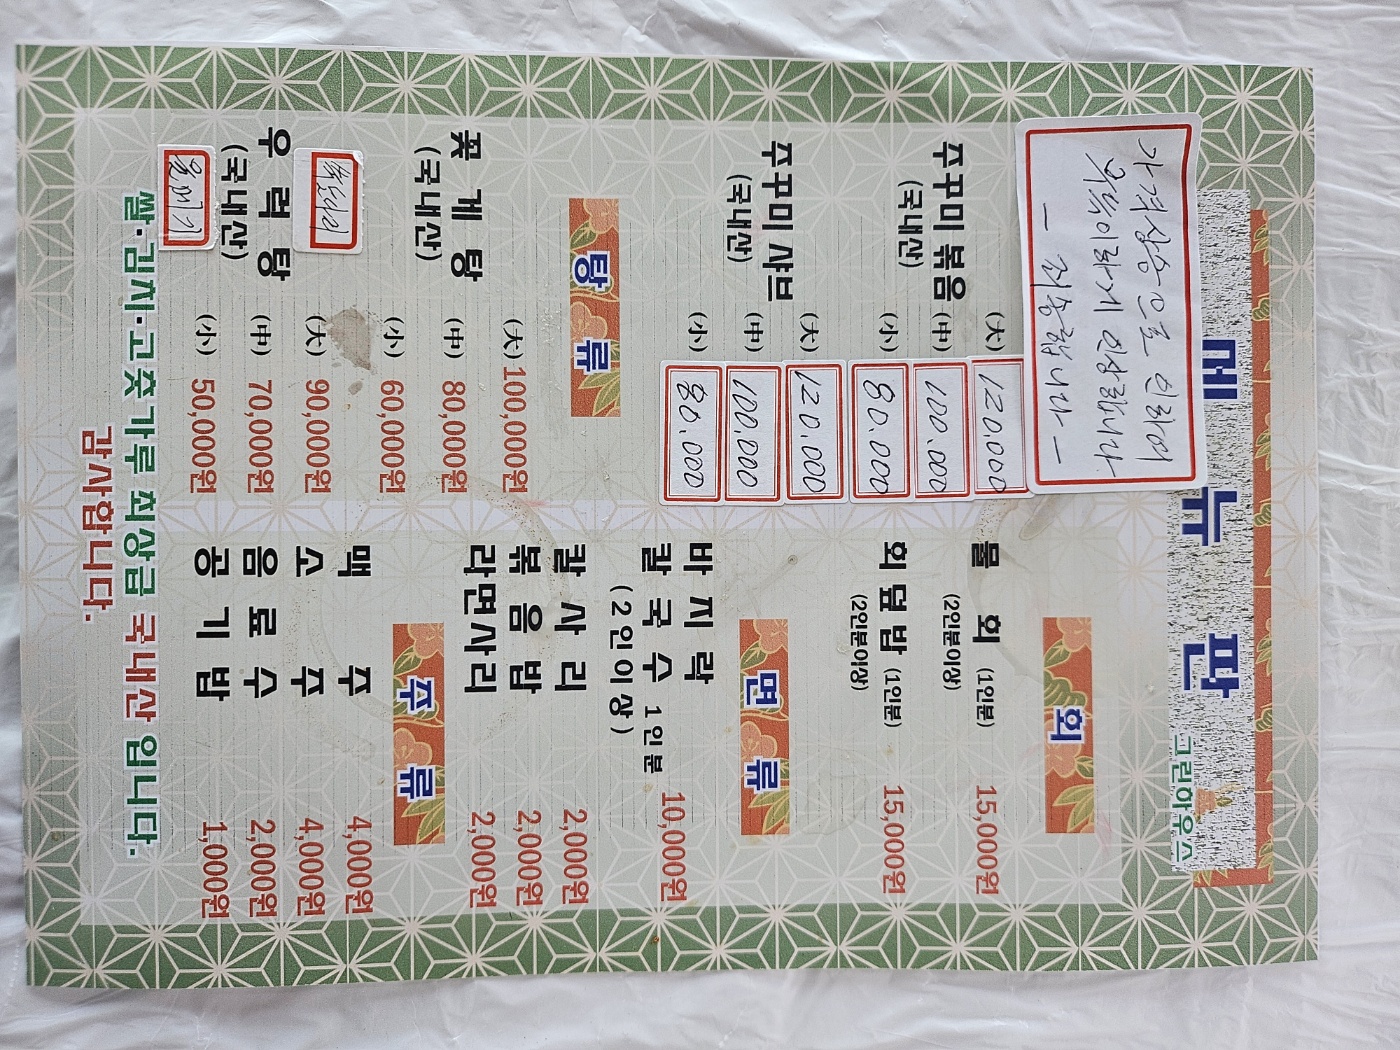 메뉴판
그린하우스
가격상승으로 인하여
부득이하게 인상합니다
- 죄송합니다 -
쭈꾸미 볶음
(국내산)
(大) 120.000
(中) 100.000
(小) 80.000
쭈꾸미 샤브
(국내산)
(大) 120.000
(中) 100.000
(小) 80.000
탕류
꽃게탕
(국내산)
(大) 100,000원
(中) 80,000원
(小) 60,000원
우럭탕
(국내산)
(大) 90,000원
(中) 70,000원
(小) 50,000원
회
물회 (1인분) 15,000원
(2인분이상)
회덮밥 (1인분) 15,000원
(2인분이상)
면류
바지락
칼국수 1인분 10,000원
(2인이상)
칼사리 2,000원
볶음밥 2,000원
라면사리 2,000원
주류
맥주 4,000원
소주 4,000원
음료수 2,000원
공기밥 1,000원
쌀·김치·고춧가루 최상급 국내산 입니다.
감사합니다.